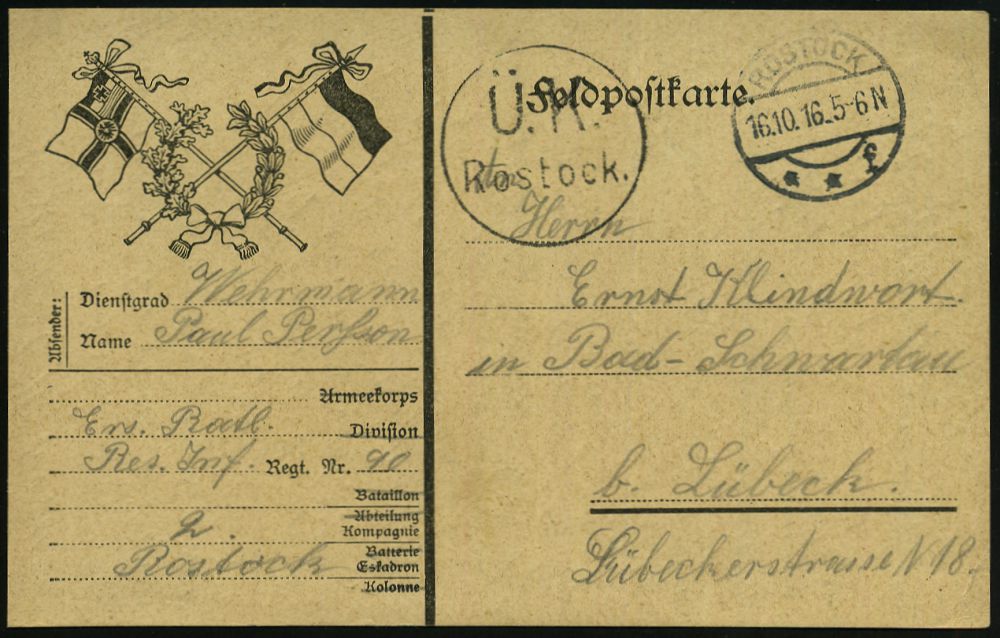 Feldpostkarte.
Ü.K.
Rostock.
ROSTOCK
16.10.16.5-6N
* * f
An
Herrn
Ernst Klindwort.
in Bad-Schwartau
b. Lübeck.
Lübeckerstrasse N 18.
Absender:
Dienstgrad Wehrmann
Name Paul Persson
Armeekorps
Ers. Batl. Division
Res. Inf. Regt. Nr. 90
Bataillon
Abteilung
2. Kompagnie
Batterie
Rostock Eskadron
Kolonne